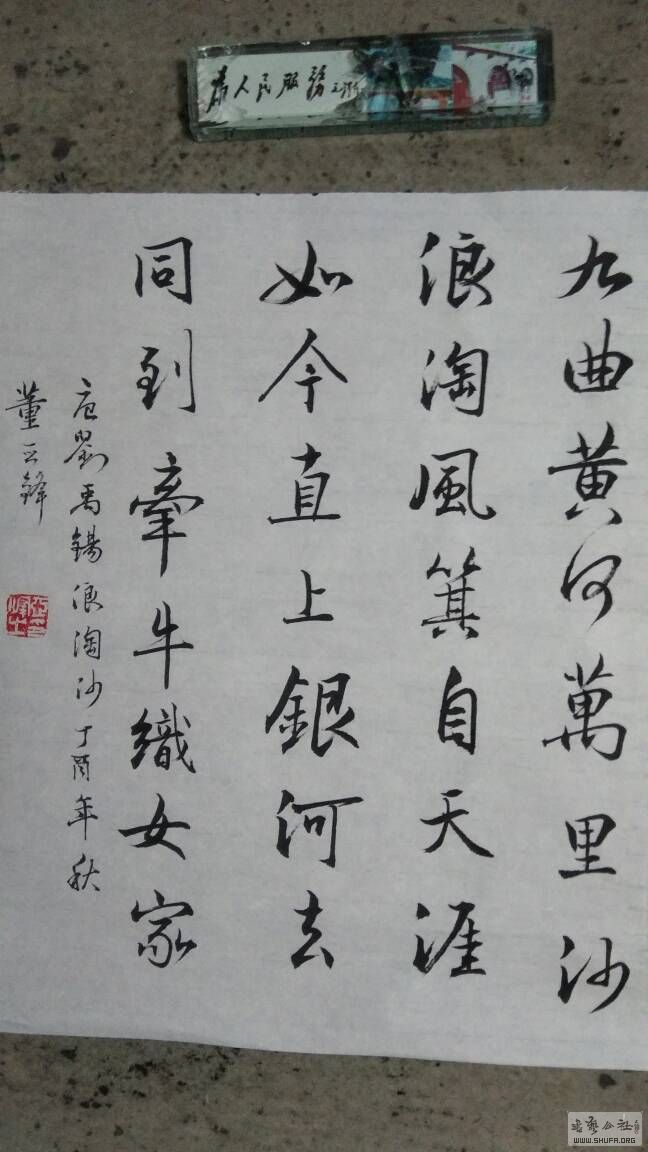 為人民服務
九曲黄河萬里沙
浪淘風簸自天涯
如今直上銀河去
同到牽牛織女家
唐劉禹錫浪淘沙丁酉年秋
董云鋒
书艺公社
WWW.SHUFA.ORG